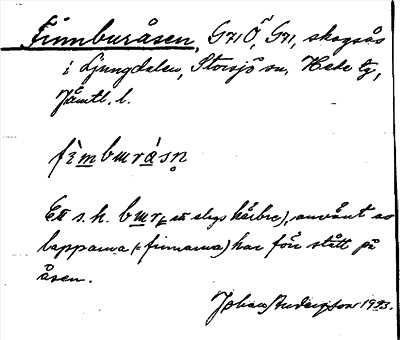 Finnburåsen, G71Ö, G71, skogsås
i Ljungdalen, Storsjö sn, Hede tg,
Jämtl. l.
fìmburásn̥
Ett s.k. bur (= ett slags härbre), använt av
lapparna (= finnarna) har förr stått på
åsen.
Johan Andersson 1923.